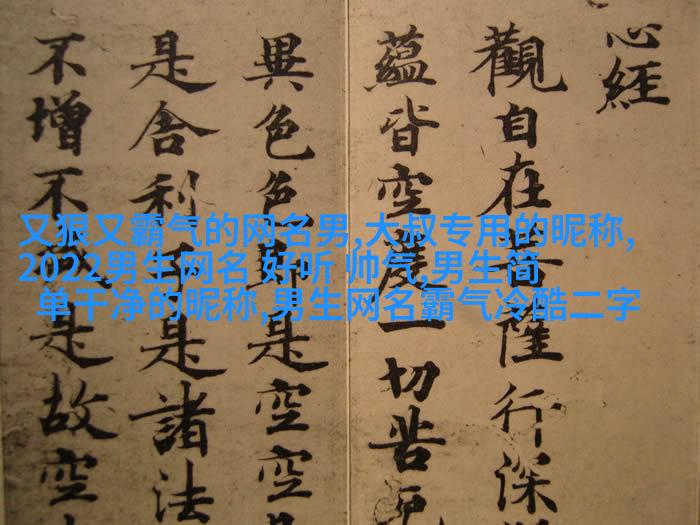 心經
觀自在菩薩行深
蘊皆空度一切苦厄
異色色即是空空
是舍利子是諸法
不增不減是故空
又狠又霸气的网名男,大叔专用的昵称,
2022男生网名 好听 帅气,男生简
单干净的昵称,男生网名霸气冷酷二字